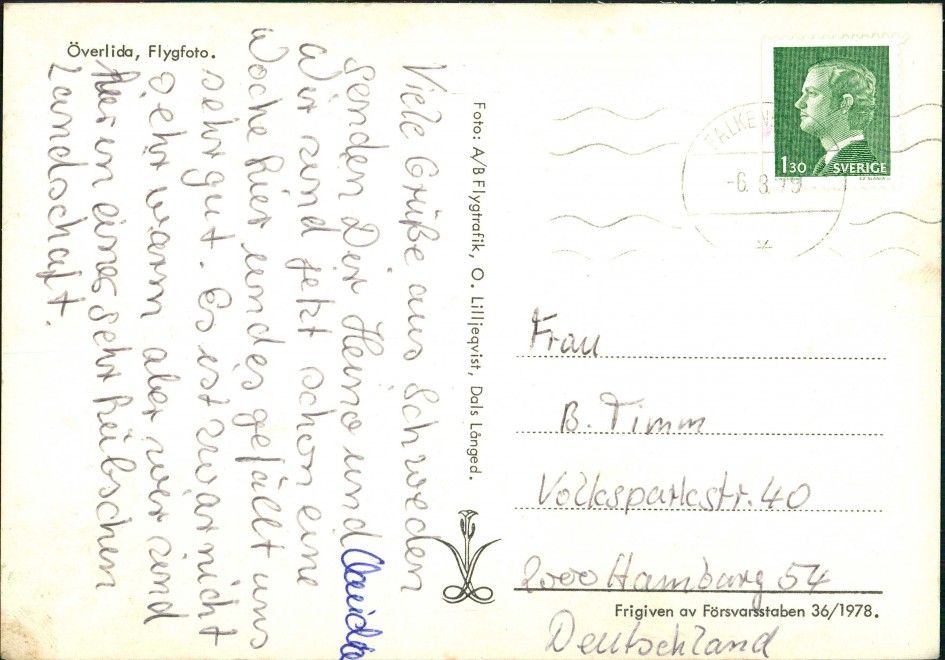 Överlida, Flygfoto.
Viele Grüße aus Schweden
senden Dir Heino und Claudia
Wir sind jetzt schon eine
Woche hier und es gefällt uns
sehr gut. Es ist zwar nicht
sehr warm aber wir sind
hier in einer sehr hübschen
Landschaft.
Foto: A/B Flygtrafik, O. Lilljeqvist, Dals Långed.
FALKEN
-6. 8. 79
1 30 SVERIGE
Frau
B. Timm
Volksparkstr. 40
2000 Hamburg 54
Frigiven av Försvarsstaben 36/1978.
Deutschland